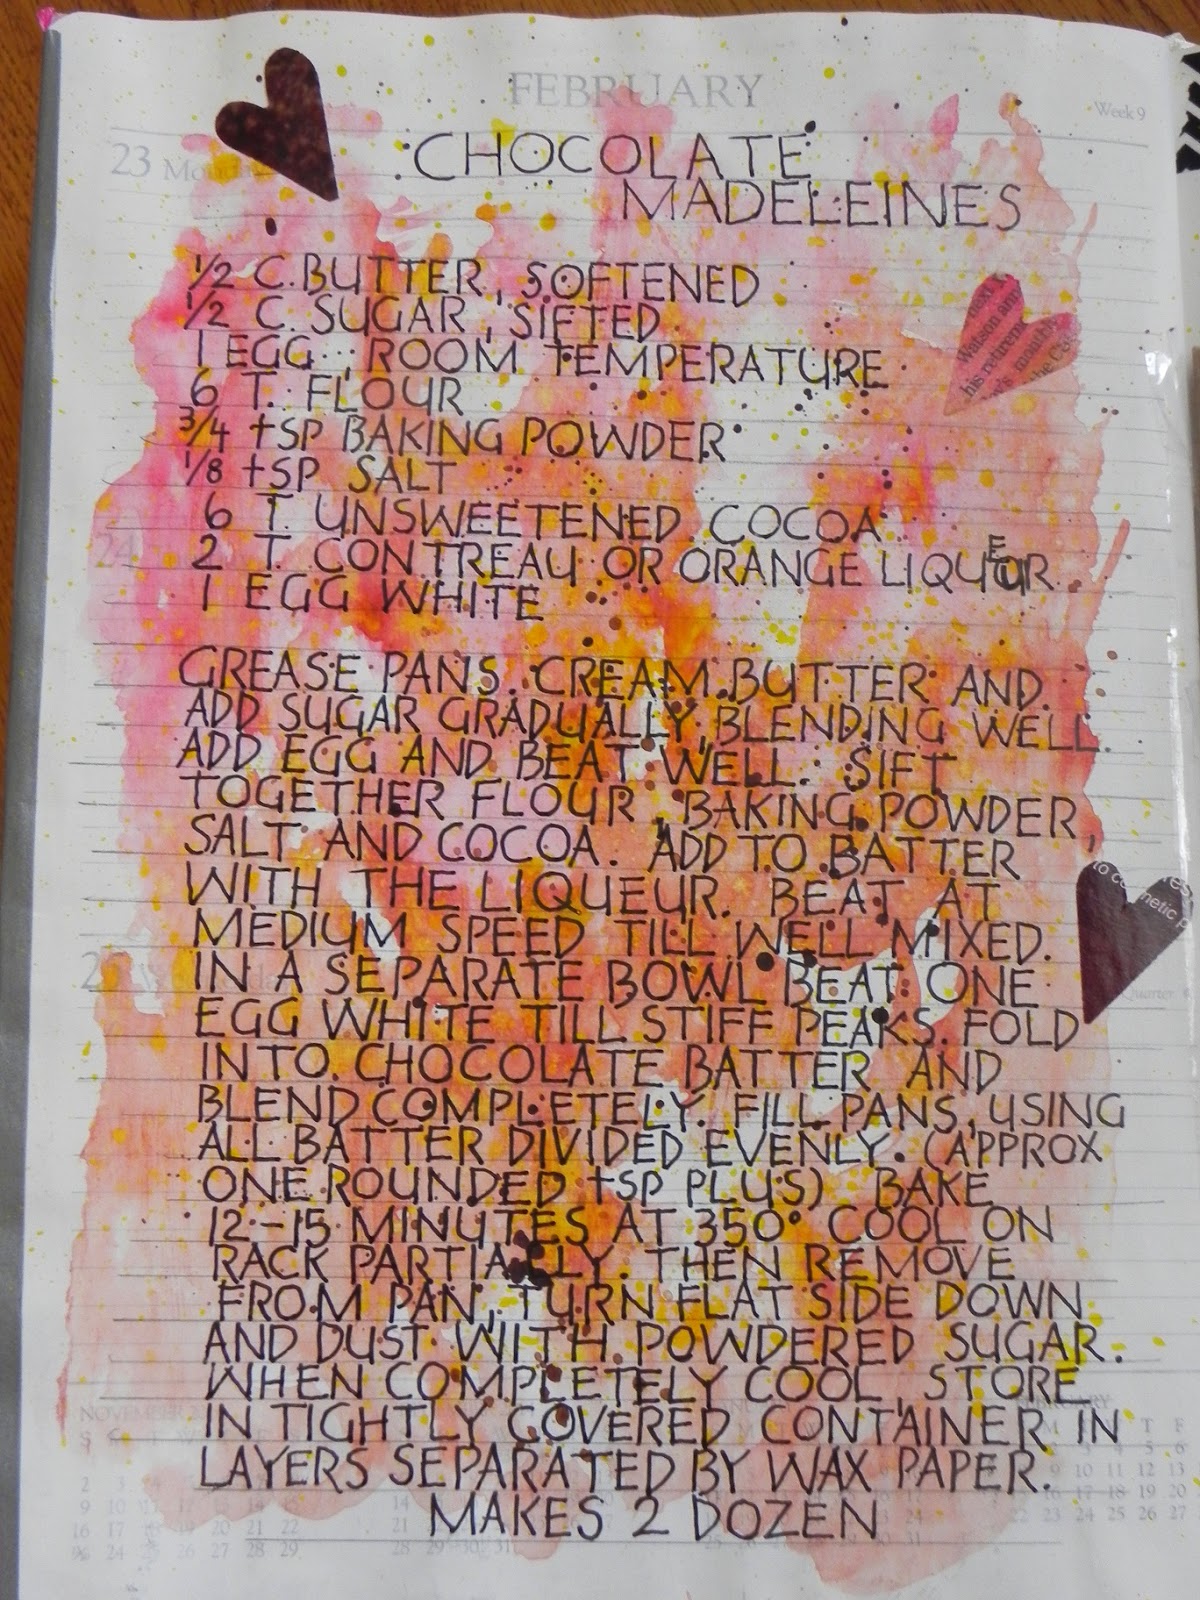 FEBRUARY
Week 9
23 Monday
CHOCOLATE
MADELEINES
1/2 C. BUTTER, SOFTENED
1/2 C. SUGAR, SIFTED
1 EGG, ROOM TEMPERATURE
6 T. FLOUR
3/4 tSP BAKING POWDER
1/8 tSP SALT
6 T. UNSWEETENED COCOA
24
2 T. CONTREAU OR ORANGE LIQUEUR
1 EGG WHITE
GREASE PANS. CREAM BUTTER AND
ADD SUGAR GRADUALLY, BLENDING WELL.
ADD EGG AND BEAT WELL. SIFT
TOGETHER FLOUR, BAKING POWDER,
SALT AND COCOA. ADD TO BATTER
WITH THE LIQUEUR. BEAT AT
MEDIUM SPEED TILL WELL MIXED.
IN A SEPARATE BOWL BEAT ONE
EGG WHITE TILL STIFF PEAKS. FOLD
INTO CHOCOLATE BATTER AND
BLEND COMPLETELY. FILL PANS, USING
ALL BATTER DIVIDED EVENLY. (APPROX
ONE ROUNDED tSP PLUS) BAKE
12-15 MINUTES AT 350° COOL ON
RACK PARTIALLY. THEN REMOVE
FROM PAN, TURN FLAT SIDE DOWN
AND DUST WITH POWDERED SUGAR.
WHEN COMPLETELY COOL, STORE
IN TIGHTLY COVERED CONTAINER IN
LAYERS SEPARATED BY WAX PAPER.
MAKES 2 DOZEN
Watson and
his retirem
mouthy
the Co
to cosmetic p
Quarter
NOVEMBER